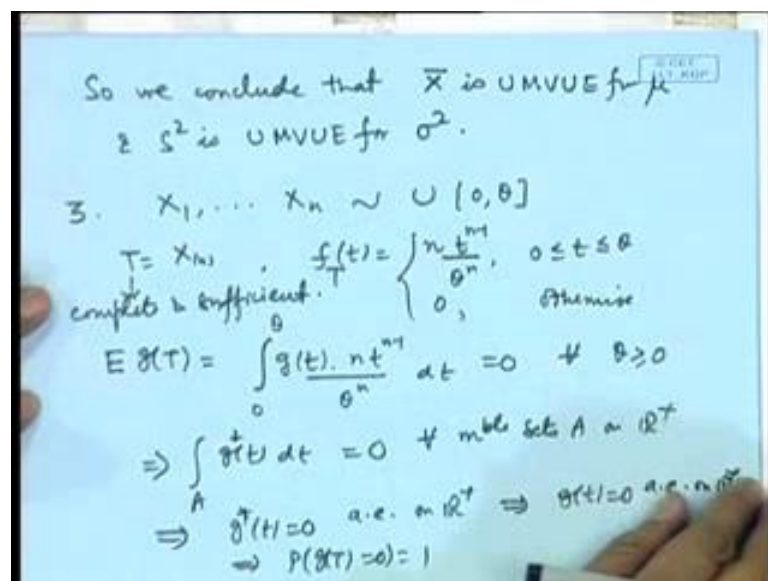 So we conclude that X̄ is UMVUE for μ
& S² is UMVUE for σ².
3. X₁, ... Xₙ ~ U [0, θ]
T = X₍ₙ₎, f_T(t) = { n t^{n-1} / θⁿ, 0 ≤ t ≤ θ
complete & sufficient. 0, otherwise
E g(T) = ∫₀^θ g(t). n t^{n-1} / θⁿ dt = 0 ∀ θ ≥ 0
⇒ ∫_A g*(t) dt = 0 ∀ mble sets A on ℝ⁺
⇒ g*(t) = 0 a.e. on ℝ⁺ ⇒ g(t) = 0 a.e. on ℝ⁺
⇒ P(g(T) = 0) = 1